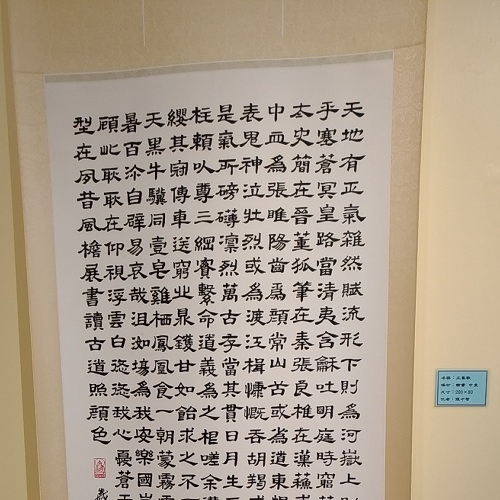 天地有正氣雜然賦流形下則為河嶽上
乎塞蒼冥皇路當清夷含龢吐明庭時窮
太史簡在晉董狐筆在秦張良椎在漢蘇
中血為張睢陽齒為顏常山舌或為遼東帽
表鬼神泣壯烈或為渡江楫慷慨吞胡羯
是氣所磅礴凜烈萬古存當其貫日月生
柱賴以尊三綱實繫命道義為之根嗟余
纓其冠傳車送窮北鼎鑊甘如飴求之不
天黑牛驥同壹皂雞栖鳳凰食一朝蒙霧
暑百沴自辟易哀哉沮洳場為我安樂國
顧此耿耿在仰視浮雲白悠悠我心憂蒼天
型在夙昔風檐展書讀古道照顏色
名稱：正氣歌